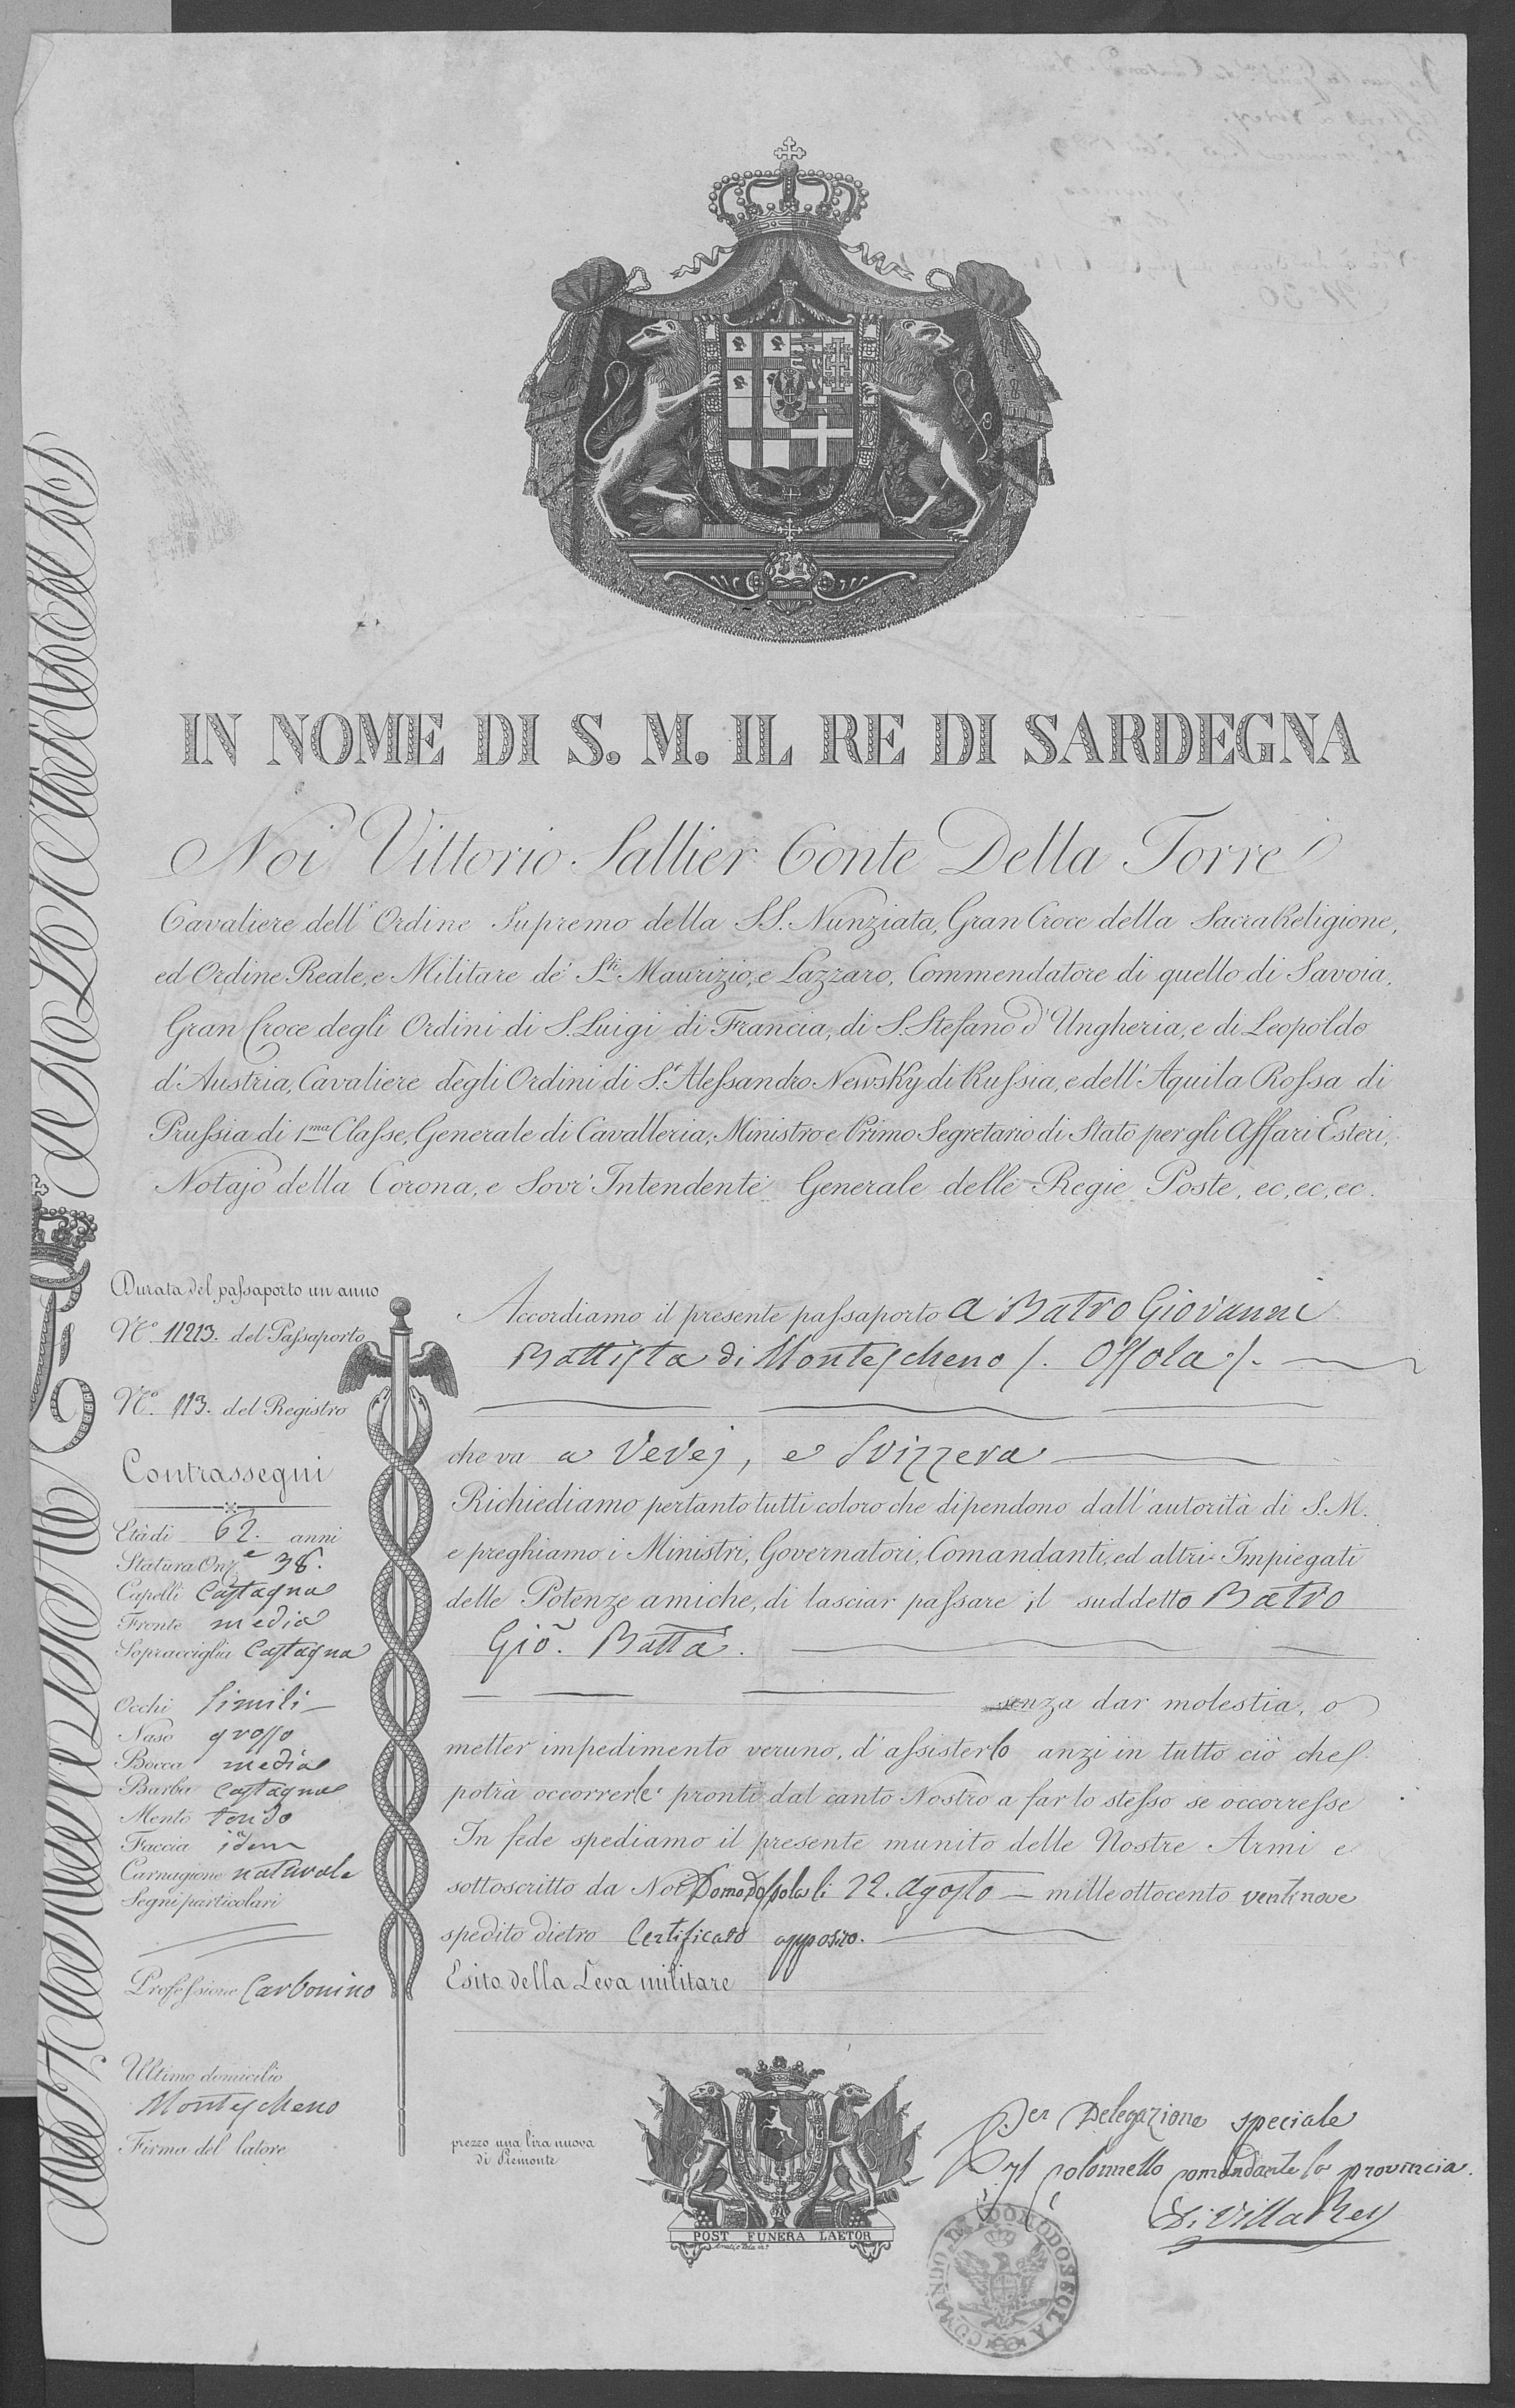 IN NOME DI S. M. IL RE DI SARDEGNA
Noi Vittorio Sallier Conte Della Torre
Cavaliere dell'Ordine Supremo della SS. Nunziata, Gran Croce della Sacra Religione,
ed Ordine Reale, e Militare de' Sti Maurizio, e Lazzaro, Commendatore di quello di Savoia,
Gran Croce degli Ordini di S. Luigi di Francia, di S. Stefano d'Ungheria, e di Leopoldo
d'Austria, Cavaliere degli Ordini di St Alessandro Newsky di Russia, e dell'Aquila Rossa di
Prussia di 1ma Classe, Generale di Cavalleria, Ministro e Primo Segretario di Stato per gli Affari Esteri,
Notajo della Corona, e Sovr'Intendente Generale delle Regie Poste, ec, ec, ec.
Durata del passaporto un anno
No 11213. del Passaporto
No. 113. del Registro
Contrassegni
Età di 62. anni
Statura Onze 38.
Capelli Castagna
Fronte media
Sopracciglia Castagna
Occhi Simili
Naso grosso
Bocca media
Barba Castagna
Mento tondo
Faccia idem
Carnagione naturale
Segni particolari
Professione Carbonino
Ultimo domicilio
Montescheno
Firma del latore
Accordiamo il presente passaporto a Batro Giovanni
Battista di Montescheno /. Ossola ./.
che va a Vevej, e Svizzera
Richiediamo pertanto tutti coloro che dipendono dall'autorità di S.M.
e preghiamo i Ministri, Governatori, Comandanti, ed altri Impiegati
delle Potenze amiche, di lasciar passare il suddetto Batro
Gio. Batta.
senza dar molestia, o
metter impedimento veruno, d'assisterlo anzi in tutto ciò che
potrà occorrerle pronti dal canto Nostro a far lo stesso se occorresse
In fede spediamo il presente munito delle Nostre Armi e
sottoscritto da Noi Domodossola li 22. Agosto mille ottocento ventinove
spedito dietro Certificato apposito.
Esito della Leva militare
prezzo una lira nuova
di Piemonte
POST FUNERA LAETOR
Per Delegazione speciale
Il Colonnello Comandante la provincia.
Di Villa Rey
COMANDO DI DOMODOSSOLA